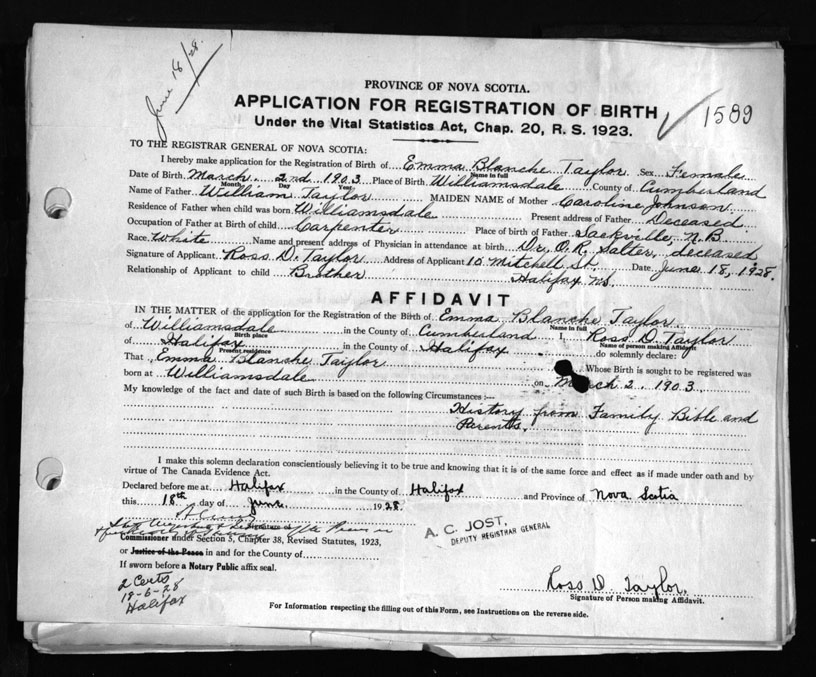 June 18/28.
1589
PROVINCE OF NOVA SCOTIA.
APPLICATION FOR REGISTRATION OF BIRTH
Under the Vital Statistics Act, Chap. 20, R. S. 1923.
TO THE REGISTRAR GENERAL OF NOVA SCOTIA:
I hereby make application for the Registration of Birth of Emma Blanche Taylor Sex Female
Name in full
Date of Birth March 2nd 1903 Place of Birth Williamsdale County of Cumberland
Month Day Year
Name of Father William Taylor MAIDEN NAME of Mother Caroline Johnson
Residence of Father when child was born Williamsdale Present address of Father Deceased
Occupation of Father at Birth of child Carpenter Place of birth of Father Sackville, N.B
Race White Name and present address of Physician in attendance at birth Dr. O.R. Salter, deceased
Signature of Applicant Ross D. Taylor Address of Applicant 10 Mitchell St. Date June 18, 1928.
Relationship of Applicant to child Brother Halifax NS.
AFFIDAVIT
IN THE MATTER of the application for the Registration of the Birth of Emma Blanche Taylor
Name in full
of Williamsdale in the County of Cumberland I, Ross D. Taylor
Birth place Name of person making Affidavit
of Halifax in the County of Halifax do solemnly declare:
Present residence
That Emma Blanche Taylor Whose Birth is sought to be registered was
born at Williamsdale on March 2. 1903.
My knowledge of the fact and date of such Birth is based on the following Circumstances :—
History from Family Bible and
Parents.
I make this solemn declaration conscientiously believing it to be true and knowing that it is of the same force and effect as if made under oath and by
virtue of The Canada Evidence Act.
Declared before me at Halifax in the County of Halifax and Province of Nova Scotia
this 18th day of June 1928.
Commissioner under Section 5, Chapter 38, Revised Statutes, 1923,
or Justice of the Peace in and for the County of
If sworn before a Notary Public affix seal.
A. C. JOST,
DEPUTY REGISTRAR GENERAL
2 Certs
19-6-28
Halifax
Ross D. Taylor.
Signature of Person making Affidavit.
For Information respecting the filling out of this Form, see Instructions on the reverse side.